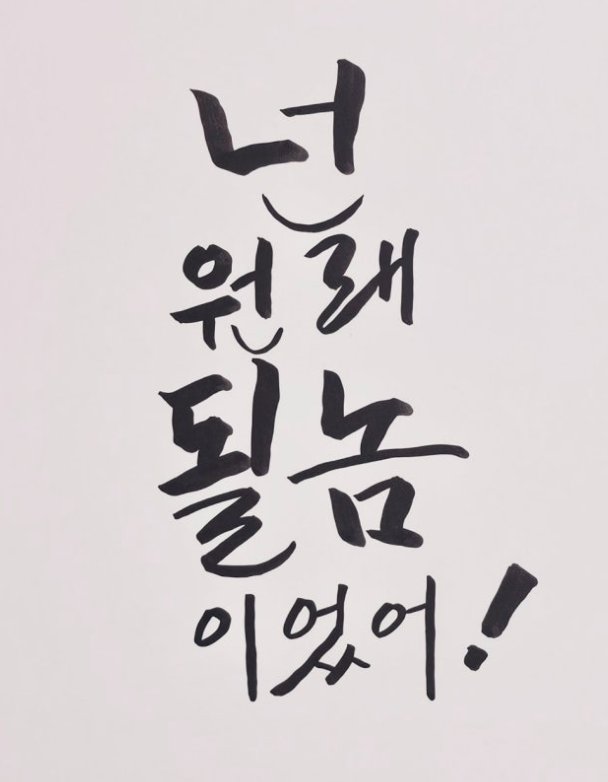 넌
원래
될놈
이었어!